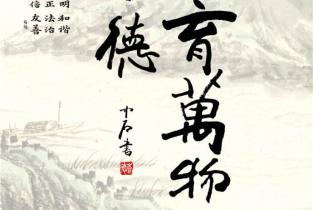 育萬物
德
中石書
明和谐
正法治
信友善